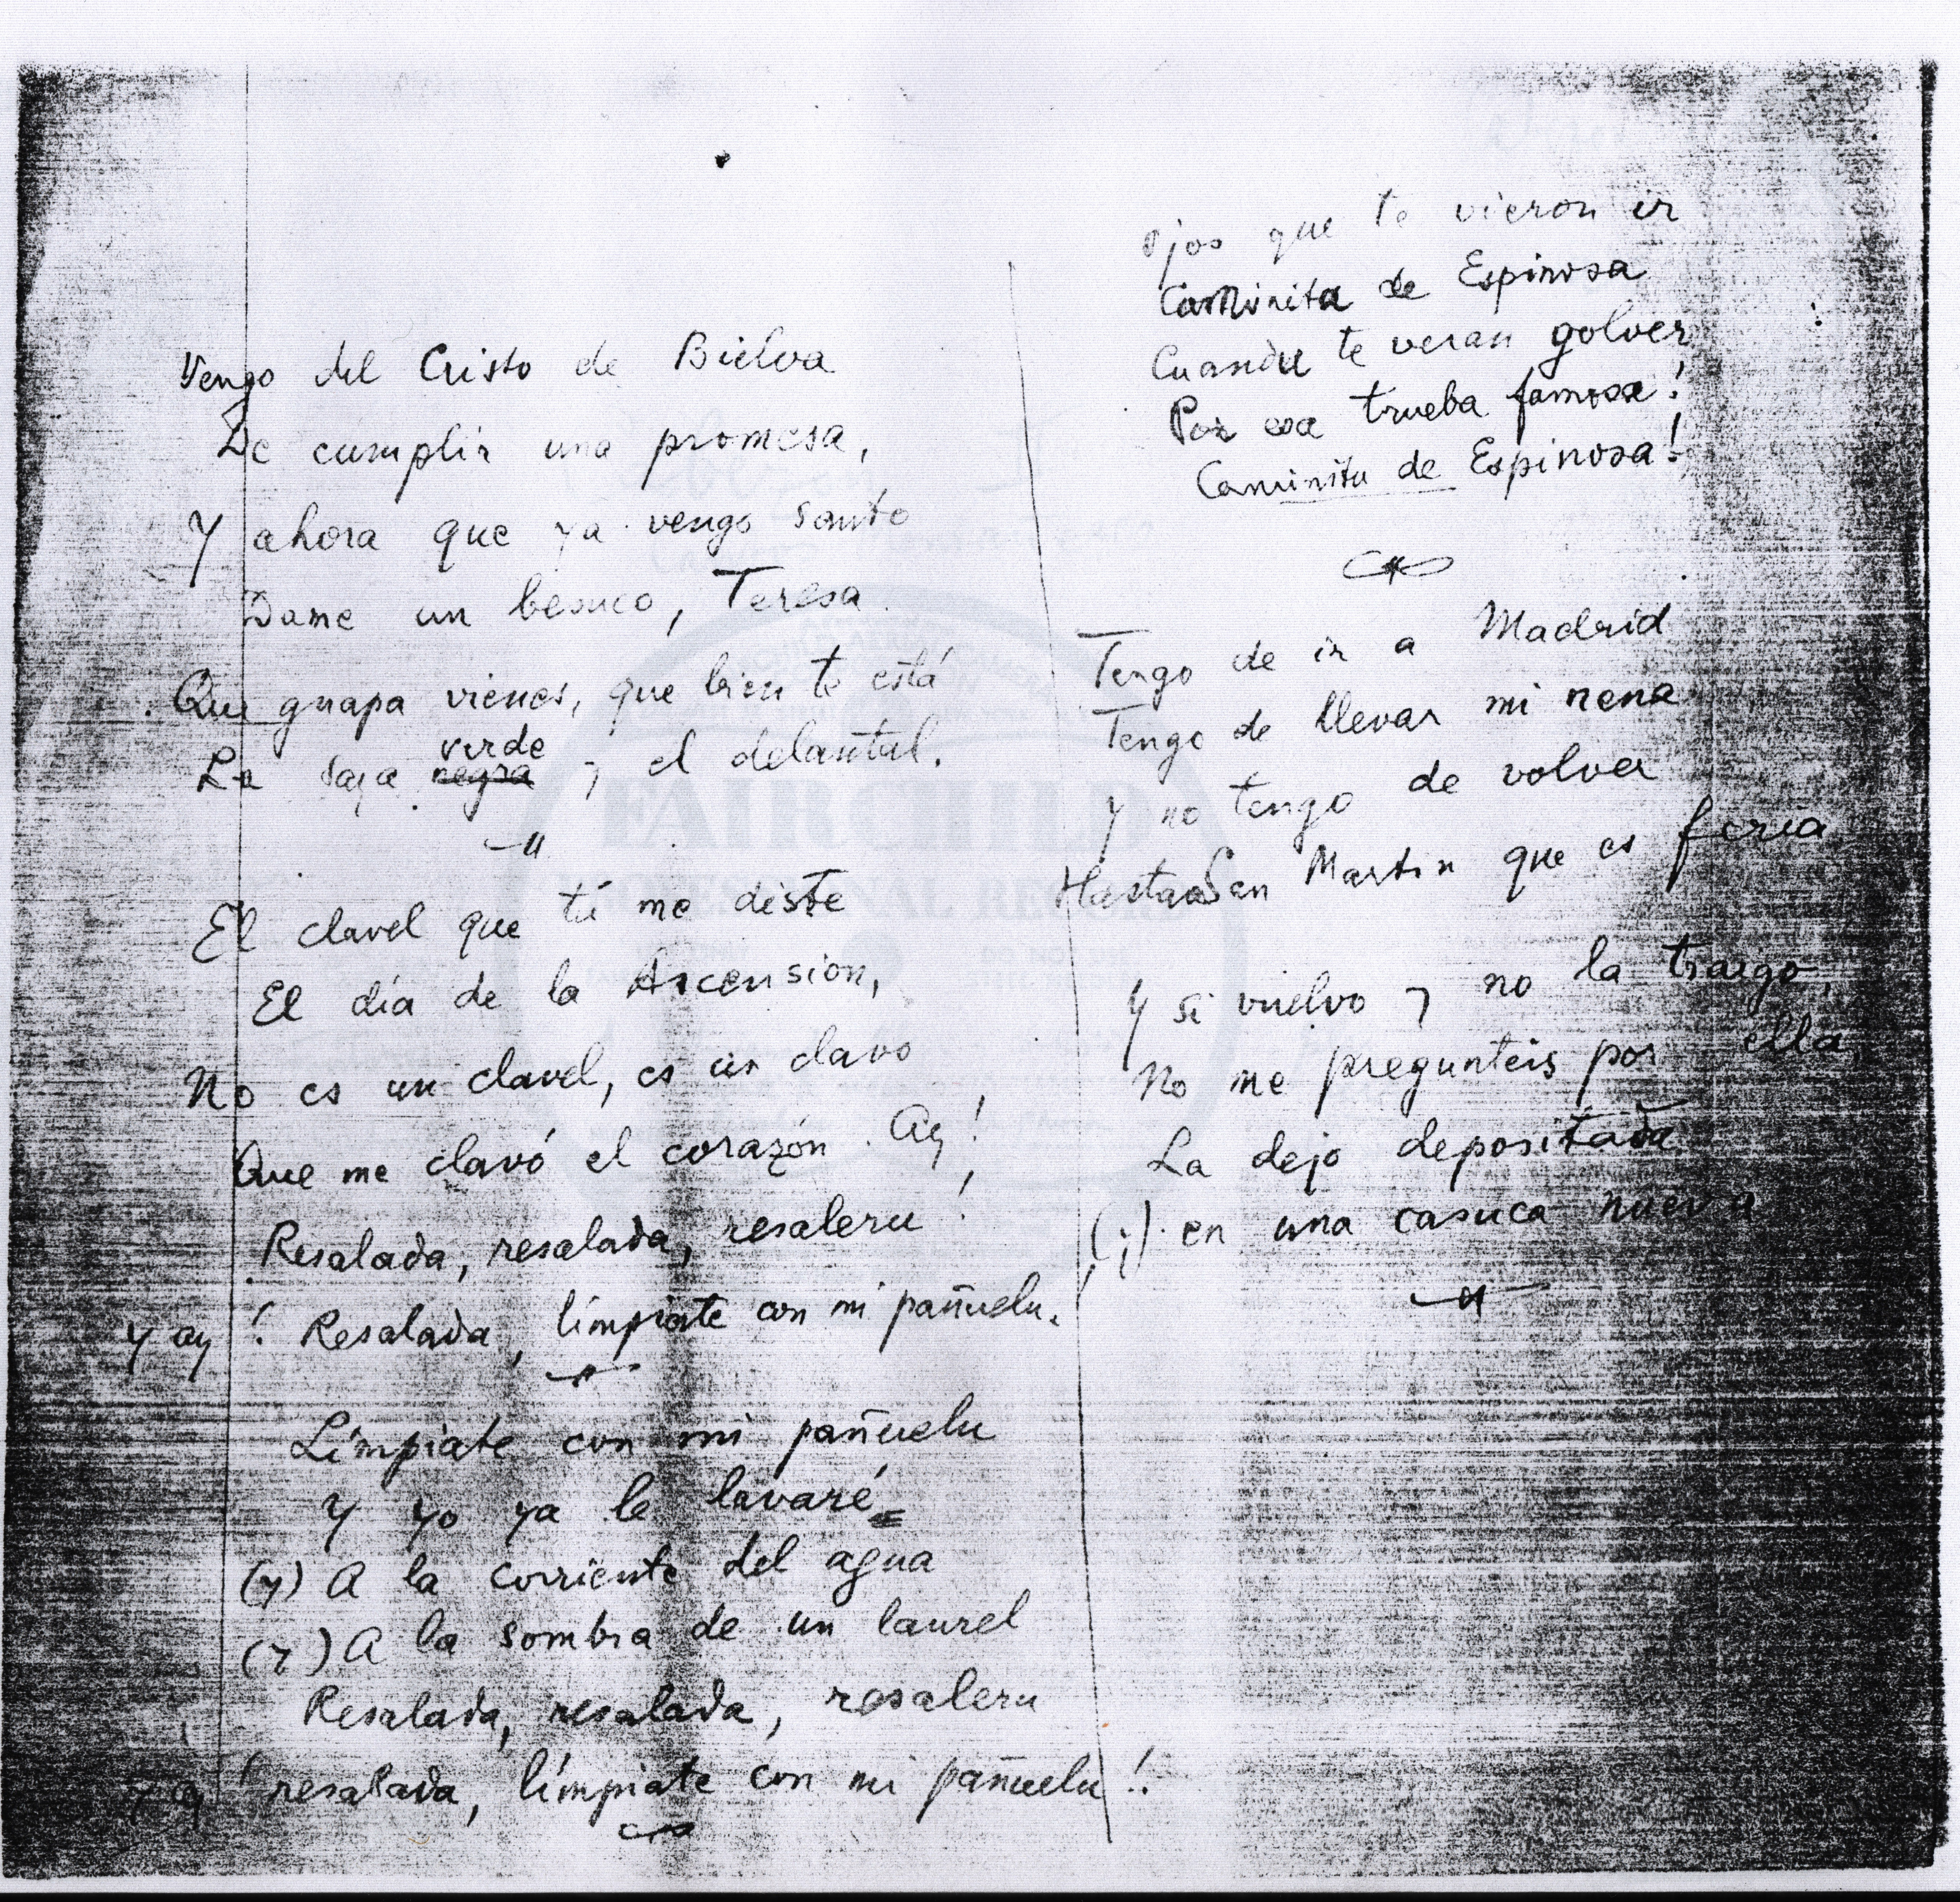 Vengo del Cristo de Bielva
De cumplir una promesa,
Y ahora que ya vengo santo
Dame un besuco, Teresa.
Que guapa vienes, que bien te está
verde
La saya negra y el delantal.
El clavel que tú me diste
El día de la Ascension,
No es un clavel, es un clavo
Que me clavó el corazón. Ay!
Resalada, resalada, resaleru!
y ay! Resalada, límpiate con mi pañuelu.
Límpiate con mi pañuelu
Y yo ya le lavaré
(y) A la corriente del agua
(y) A la sombra de un laurel
Resalada, resalada, resaleru
y ay! resalada, límpiate con mi pañuelu!.
Ojos que te vieron ir
Caminita de Espinosa
Cuandu te veran golver
Por esa trueba famosa!
Caminitu de Espinosa!
Tengo de ir a Madrid
Tengo de llevar mi nena
Y no tengo de volver
Hasta San Martin que es feria
Y si vuelvo y no la traigo,
No me pregunteis por ella
La dejo depositada
(i) en una casuca nueva
FAIRCHILD